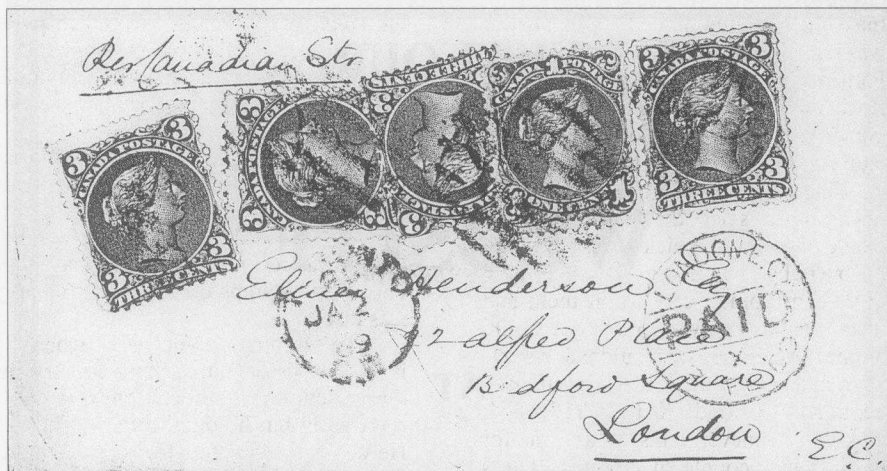 Per Canadian Str
3 3
CANADA POSTAGE
3 3
THREE CENTS
3 3
CANADA POSTAGE
3 3
THREE CENTS
3
CANADA POSTAGE
1
CANADA POSTAGE
1
ONE CENT
3 3
CANADA POSTAGE
3 3
THREE CENTS
JA 2
9
LONDON E.C
PAID
X
Henderson Esq
2 Alfred Place
Bedford Square
London
E.C.